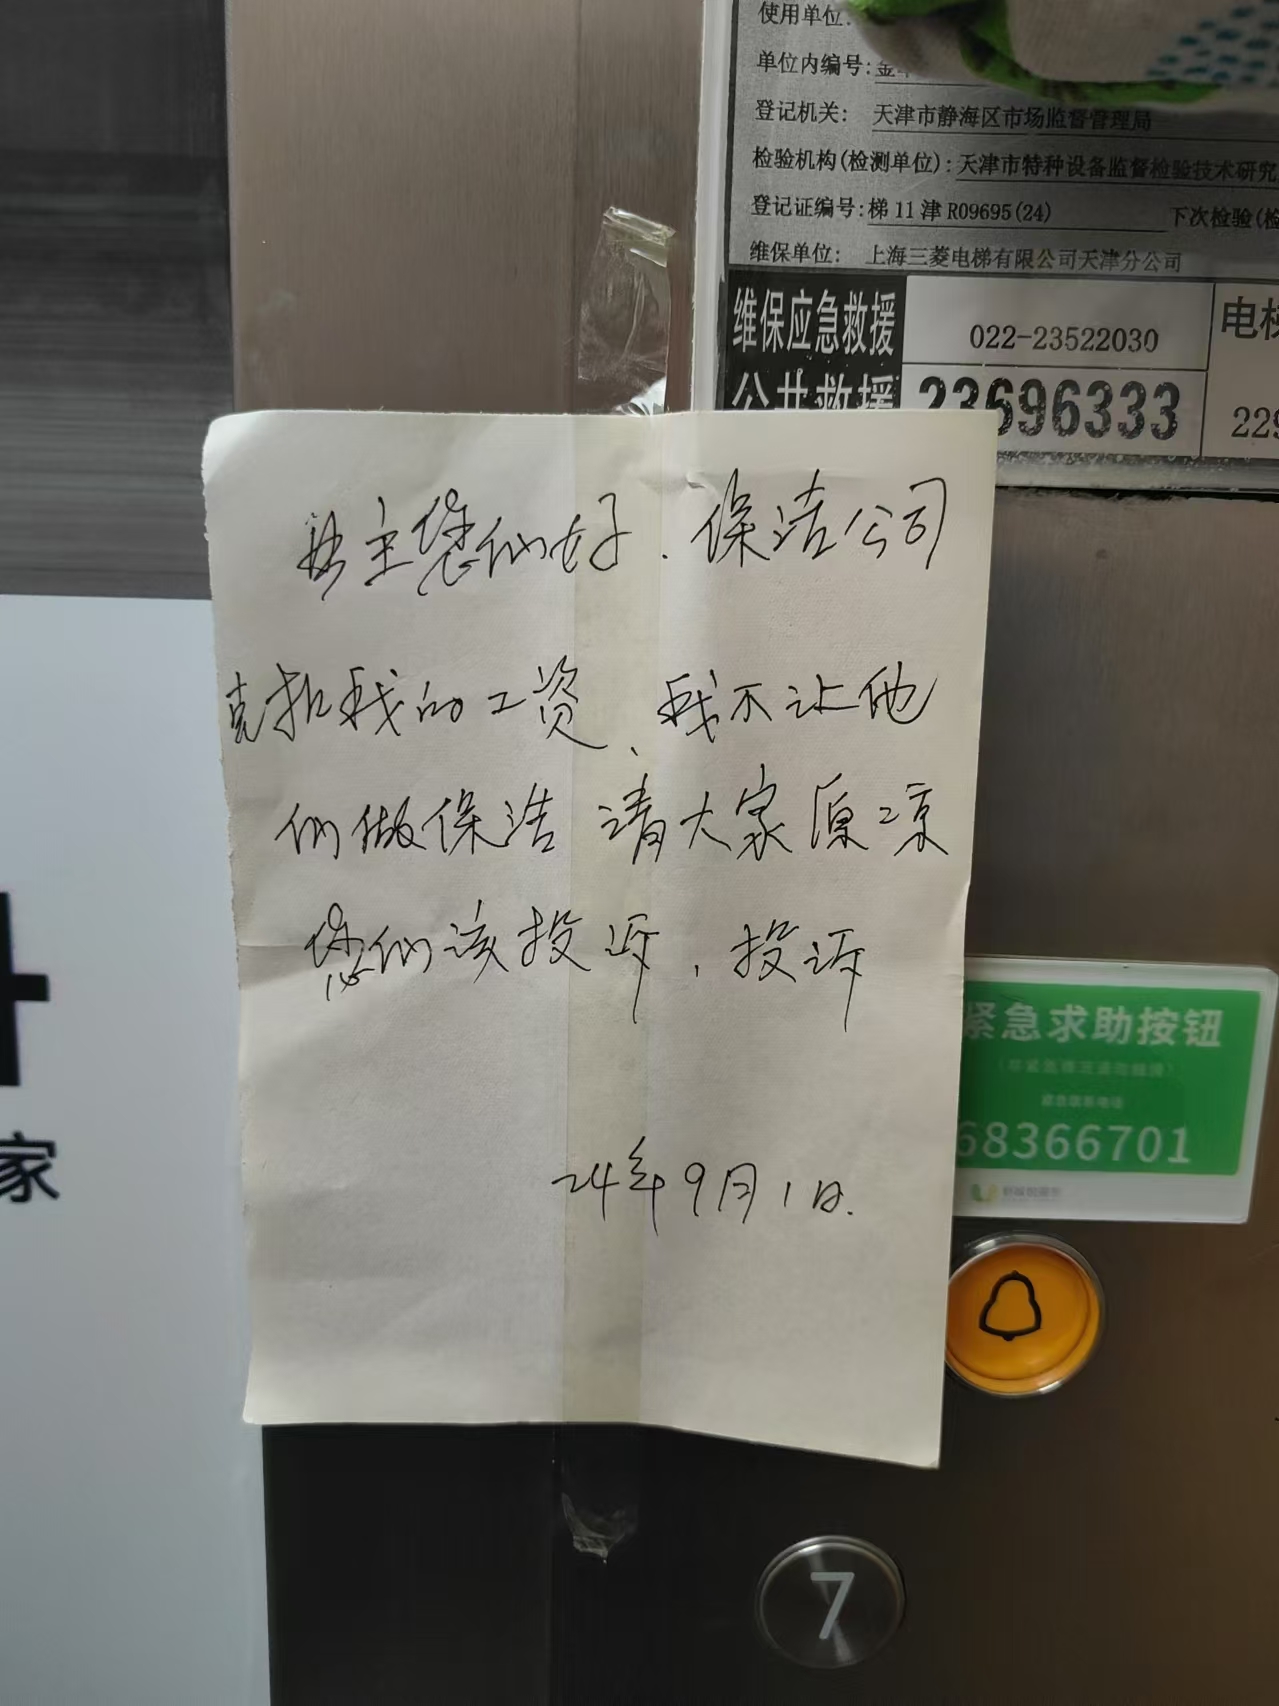 使用单位:
单位内编号:金
登记机关: 天津市静海区市场监督管理局
检验机构(检测单位):天津市特种设备监督检验技术研究
登记证编号:梯11津R09695(24) 下次检验(检
维保单位: 上海三菱电梯有限公司天津分公司
维保应急救援 022-23522030 电梯
公共救援 23696333 229
业主您们好、保洁公司
克扣我的工资、我不让他
们做保洁 请大家原凉
您们该投诉,投诉
24年9月1日.
紧急求助按钮
紧急联系电话
68366701
家
7